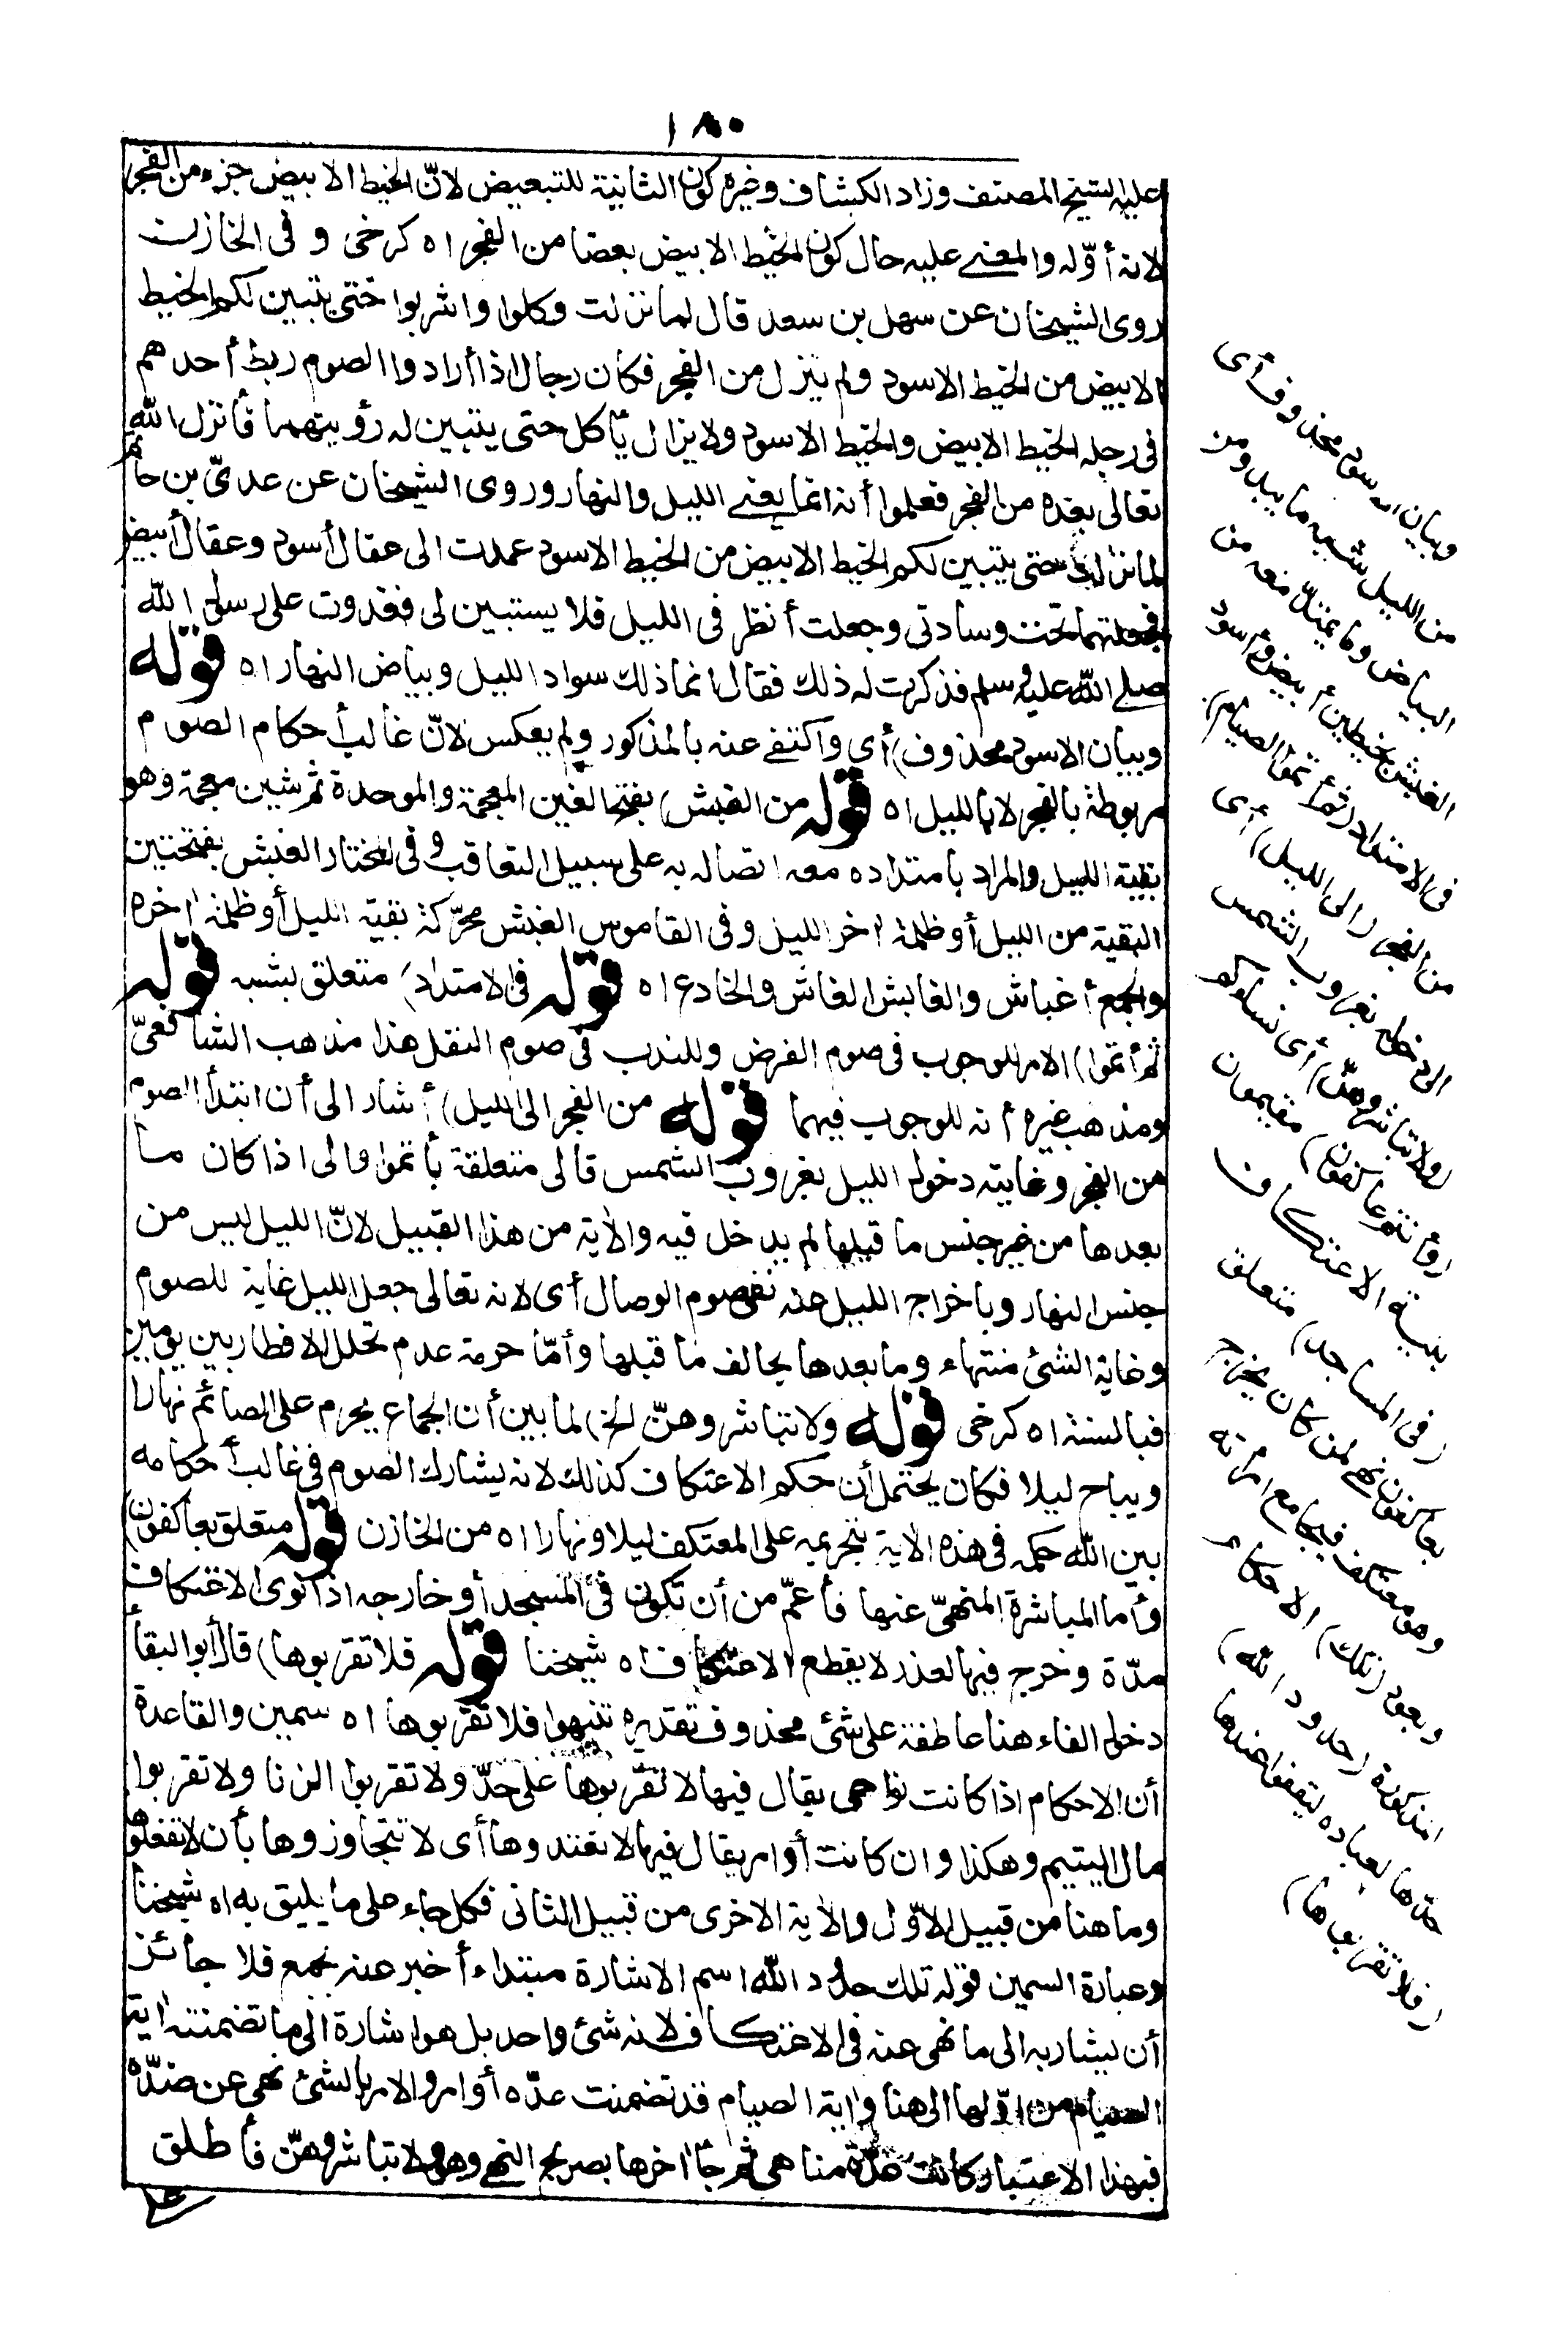 ١٨٠
عليه الشيخ المصنف وزاد الكشاف وغيره كون الثانية للتبعيض لانّ الخيط الابيض جزء من الفجر
لانه أوّله والمعنى عليه حال كون الخيط الابيض بعضا من الفجر اه كرخى وفى الخازن
روى الشيخان عن سهل بن سعد قال لما نزلت وكلوا واشربوا حتى يتبين لكم الخيط
الابيض من الخيط الاسود ولم ينزل من الفجر فكان رجال اذا أرادوا الصوم ربط أحدهم
فى رجله الخيط الابيض والخيط الاسود ولا يزال يأكل حتى يتبين له رؤيتهما فأنزل الله
تعالى بعده من الفجر فعلموا أنه انما يعنى الليل والنهار وروى الشيخان عن عدىّ بن حاتم
لما نزلت حتى يتبين لكم الخيط الابيض من الخيط الاسود عمدت الى عقال أسود وعقال أبيض
فجعلتهما تحت وسادتى وجعلت أنظر فى الليل فلا يستبين لى فغدوت على رسول الله
صلى الله عليه وسلم فذكرت له ذلك فقال انما ذلك سواد الليل وبياض النهار اه قوله
وبيان الاسود محذوف) أى واكتفى عنه بالمذكور ولم يعكس لانّ غالب أحكام الصوم
مربوطة بالفجر لا بالليل اه قوله من الغبش) بفتح الغين المعجمة والموحدة ثم شين معجمة وهو
بقية الليل والمراد بامتداده معه اتصاله به على سبيل التعاقب وفى المختار الغبش بفتحتين
البقية من الليل أو ظلمة اخر الليل وفى القاموس الغبش محرّكة بقية الليل أو ظلمة اخره
والجمع أغباش والغابش الغاش والخادع اه قوله فى الامتداد) متعلق بشبه قوله
ثم أتموا) الامر للوجوب فى صوم الفرض وللندب فى صوم النفل هذا مذهب الشافعىّ
ومذهب غيره أنه للوجوب فيهما قوله من الفجر الى الليل) أشار الى أن ابتدأ الصوم
من الفجر وغايته دخول الليل بغروب الشمس فالى متعلقة بأتموا والى اذا كان ما
بعدها من غير جنس ما قبلها لم يدخل فيه والآية من هذا القبيل لانّ الليل ليس من
جنس النهار وباخراج الليل عنه نفى صوم الوصال أى لانه تعالى جعل الليل غاية للصوم
وغاية الشئ منتهاه وما بعدها يخالف ما قبلها وأمّا حرمة عدم تخلل الافطار بين يومين
فبالسنة اه كرخى قوله ولا تباشروهنّ الخ) لما بين أن الجماع يحرم على الصائم نهارا
ويباح ليلا فكان يحتمل أن حكم الاعتكاف كذلك لانه يشارك الصوم فى غالب أحكامه
بين الله حكمه فى هذه الآية بتحريمه على المعتكف ليلا ونهارا اه من الخازن قوله متعلق بعاكفون)
وأما المباشرة المنهىّ عنها فأعمّ من أن تكون فى المسجد أو خارجه اذا نوى الاعتكاف
مدّة وخرج فيها لعذر لا يقطع الاعتكاف اه شيخنا قوله فلا تقربوها) قال أبو البقأ
دخول الفاء هنا عاطفة على شئ محذوف تقديره تنبهوا فلا تقربوها اه سمين والقاعدة
أن الاحكام اذا كانت نواهى يقال فيها لا تقربوها على حدّ ولا تقربوا الزنا ولا تقربوا
مال اليتيم وهكذا وان كانت أوامر يقال فيها لا تعتدوها أى لا تتجاوزوها بأن لا تفعلوها
وما هنا من قبيل الأوّل والآية الاخرى من قبيل الثانى فكل جاء على ما يليق به اه شيخنا
وعبارة السمين قوله تلك حدود الله اسم الاشارة مبتداء أخبر عنه بجمع فلا جائز
أن يشار به الى ما نهى عنه فى الاعتكاف لانه شئ واحد بل هو اشارة الى ما تضمنته اية
الصيام من اوّلها الى هنا واية الصيام قد تضمنت عدّه أوامر والامر بالشئ نهى عن ضدّه
فبهذا الاعتبار كانت عدّة مناهى ثم جأ اخرها بصريح النهى وهو ولا تباشروهنّ فأطلق
وبيان الاسود محذوف أى
من الليل شبه ما يبدو من
البياض وما يمتدّ معه من
الغبش بخيطين أبيض وأسود
فى الامتداد (ثم أتموا الصيام)
من الفجر (الى الليل) أى
الى دخوله بغروب الشمس
(ولا تباشروهنّ) أى نساءكم
(وأنتم عاكفون) مقيمون
بنية الاعتكاف
(فى المساجد) متعلق
بعاكفون نهى لمن كان يخرج
وهو معتكف فيجامع امرأته
ويعود (تلك) الاحكام
المذكورة (حدود الله)
حدّها لعباده ليقفوا عندها
(فلا تقربوها)